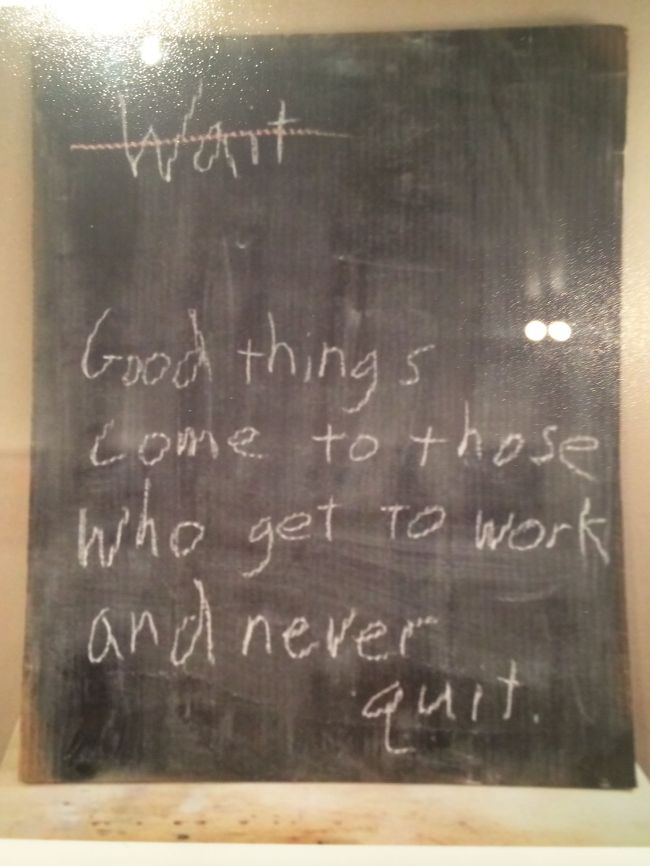 Wait
Good things
come to those
who get to work
and never
quit.